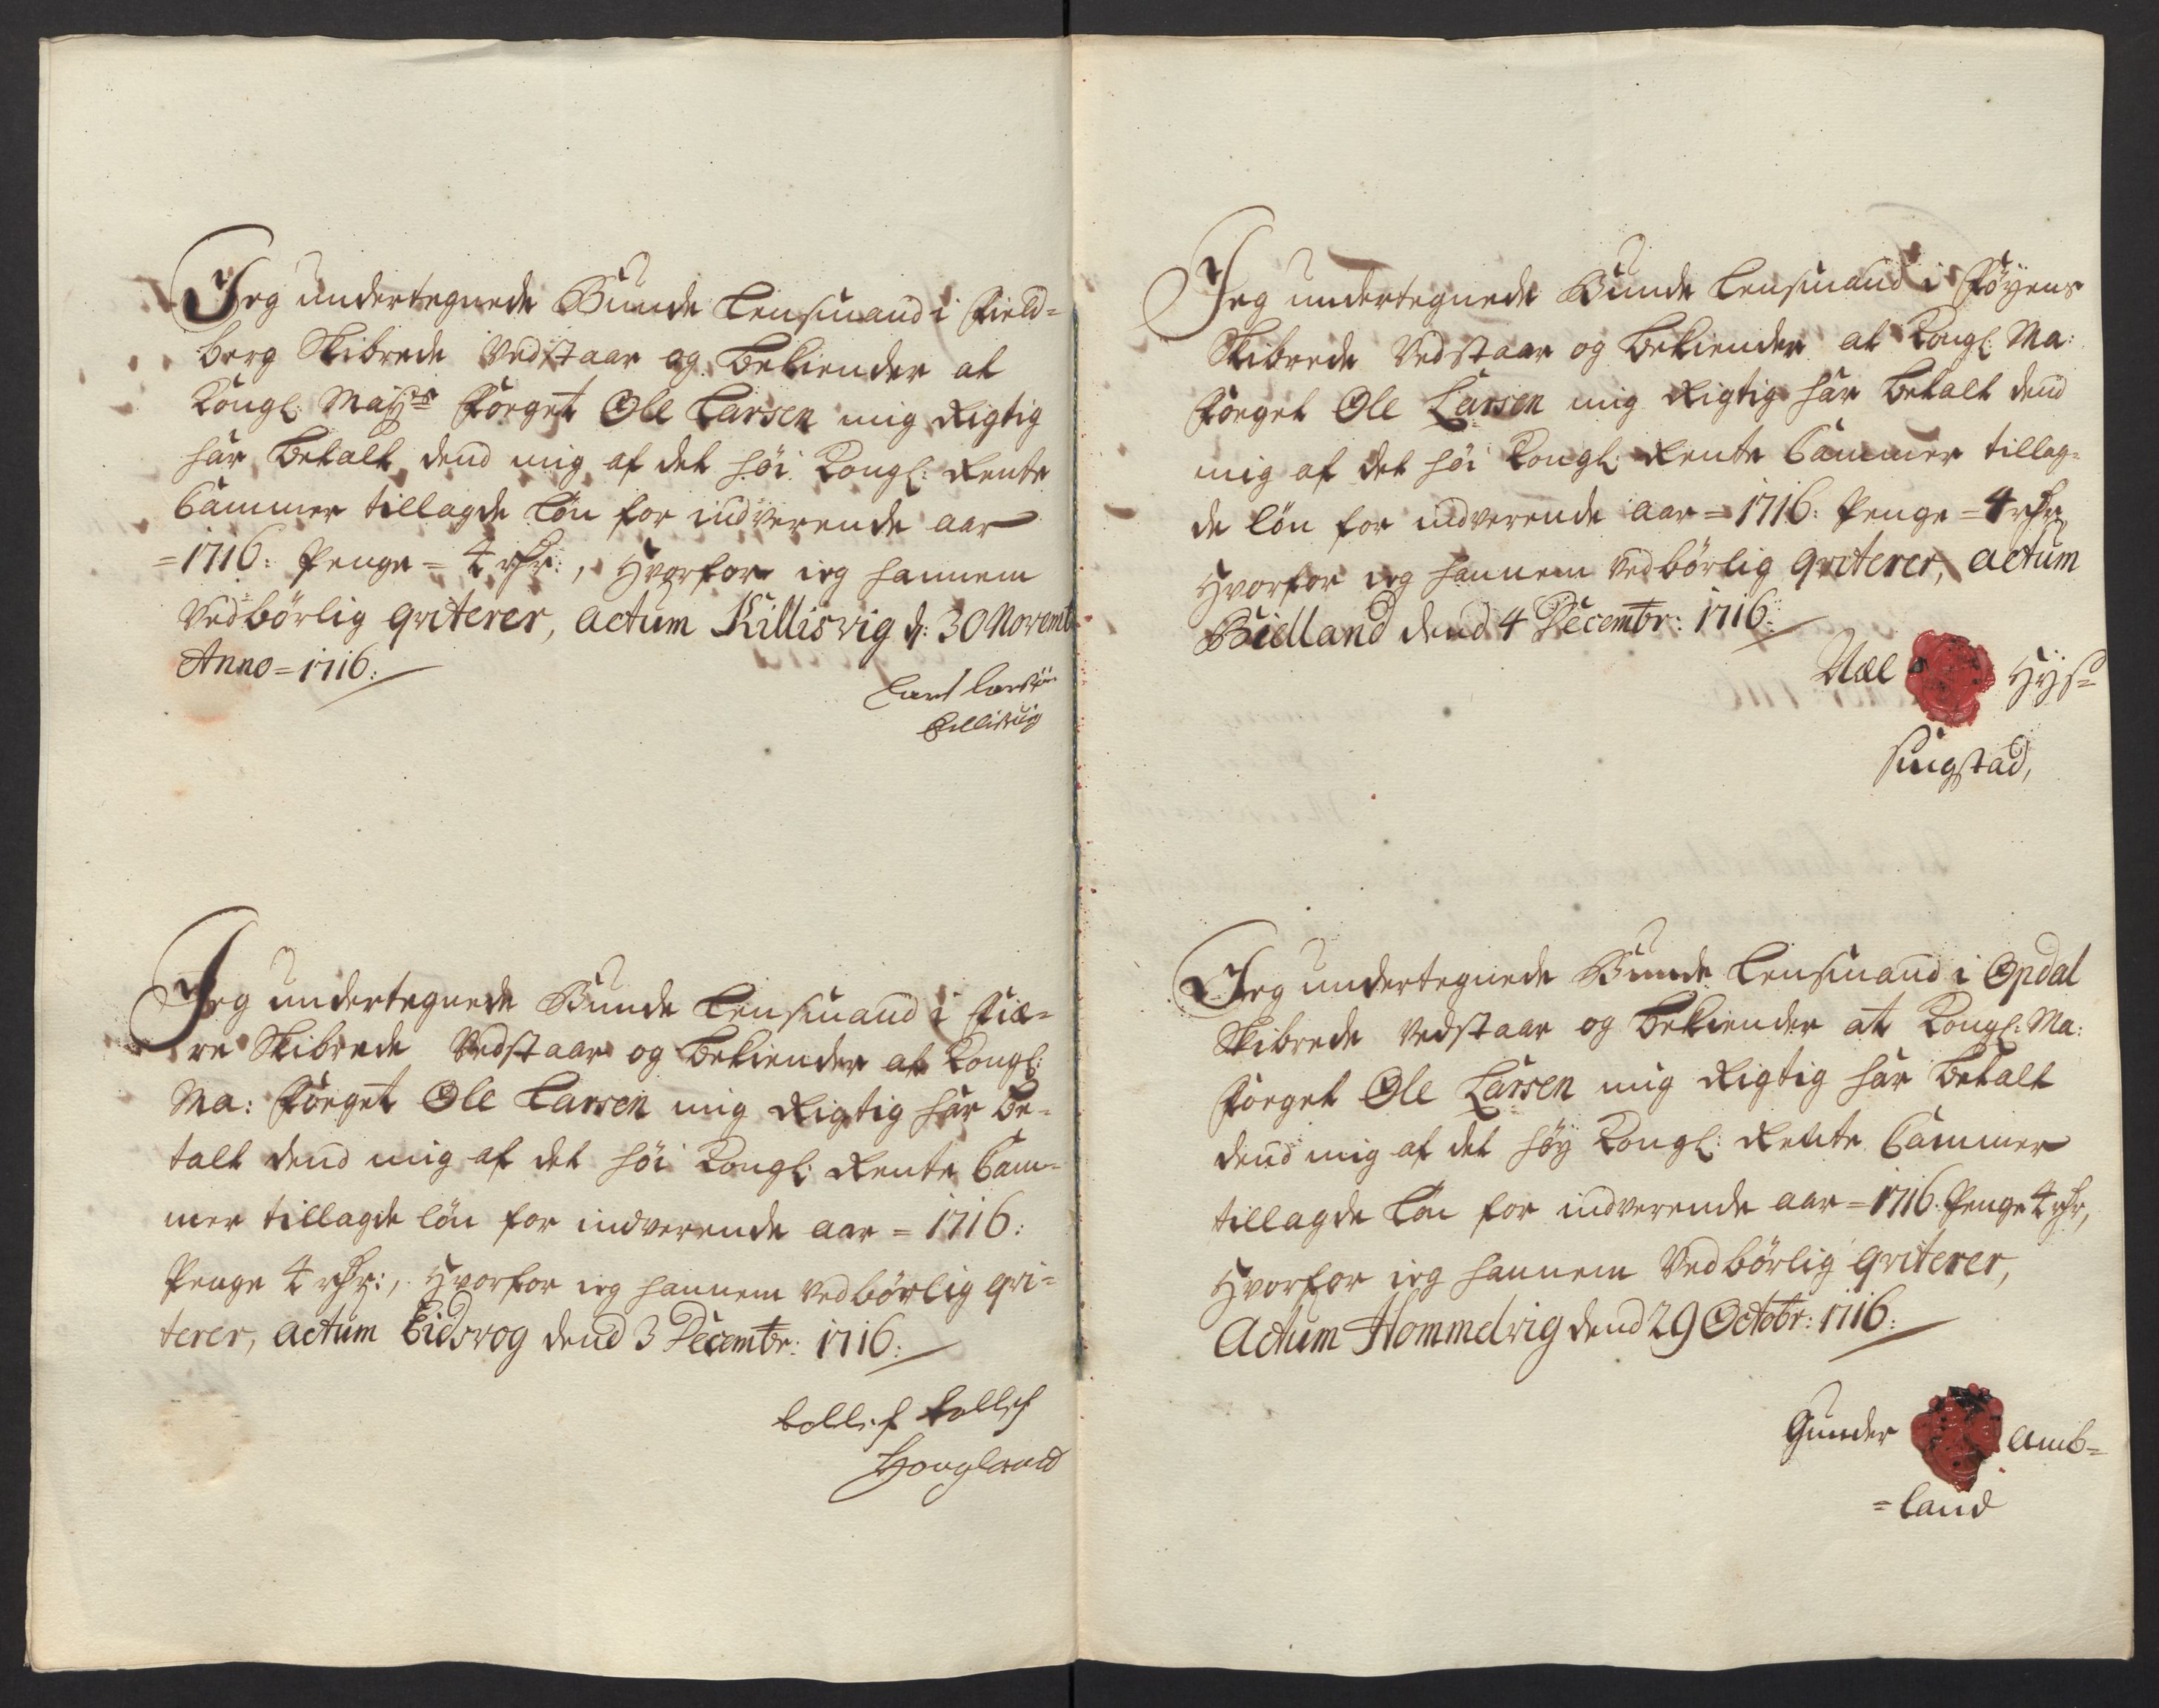 Jeg undertegnede Bunde Lensmand i Field=
berg Skibrede Vedstaar og bekiender at
Kongl: May.ts Foeget Ole Larsen mig Rigtig
har betalt dend mig af det høi Kongl: Rente
Cammer tillagde Løn for indverende aar
=1716: Penge = 4 rdr:, Hvorfor ieg hannem
Vedbörlig qviterer, actum Killisvig d: 30 Novemb
Anno = 1716:
Lars Larsøn
Killisvig
Jeg undertegnede Bunde Lensmand i Fiæ=
re Skibrede Vedstaar og bekiender at Kongl:
Ma: Foeget Ole Larsen mig Rigtig har be=
talt dend mig af det høi Kongl: Rente Cam=
mer tillagde løn for indverende aar = 1716:
Penge 4 rdr:, Hvorfor ieg hannem vedbörlig qvi=
terer, actum Eidsvog dend 3 Decembr: 1716:
Tollef Tollefs
Hougland
Jeg undertegnede Bunde Lensmand i Føyens
Skibrede Vedstaar og bekiender at Kongl: Ma:
Foeget Ole Larsen mig Rigtig har betalt dend
mig af det høi Kongl: Rente Cammer tillag=
de løn for indverende aar = 1716: Penge = 4 rdr
Hvorfor ieg hannem vedbörlig qviterer, actum
Bielland dend 4 Decembr: 1716:
Siugstad,
Jeg undertegnede Bunde Lensmand i Opdal
Skibrede vedstaar og bekiender at Kongl: Ma:
Foeget Ole Larsen mig Rigtig har betalt
dend mig af det høy Kongl: Rente Cammer
tillagde Løn for indverende aar = 1716. Penge 4 rdr,
Hvorfor ieg hannem Vedbörlig qviterer,
Actum Hommelvig dend 29 Octobr: 1716:
Gunder Amb=
=land